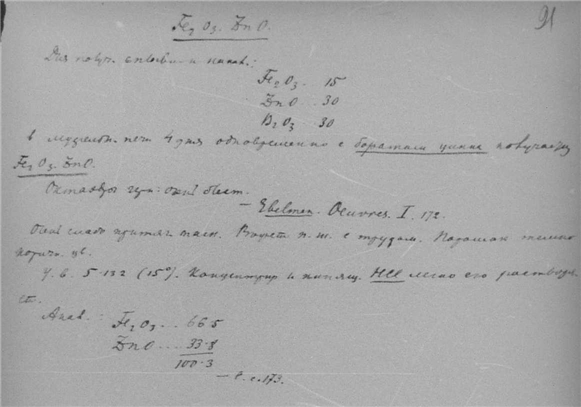 91
Fe2O3. ZnO.
Для получ. сплавили
Fe2O3 .. 15
ZnO ... 30
B2O3 .. 30
в муфельн. печи 4 дня одновременно с боратами цинка получается
Fe2O3. ZnO.
блест.
— Ebelmen. Oeuvres. I. 172.
слабо притяг. магн. с трудом. Порошок темно
коричн. цв.
У. в. 5.132 (15°). Концентрир. и кипящ. HCl легко его растворя
ет.
Анал.: Fe2O3 ... 66.5
ZnO .... 33.8
100.3
— l. c. 173.